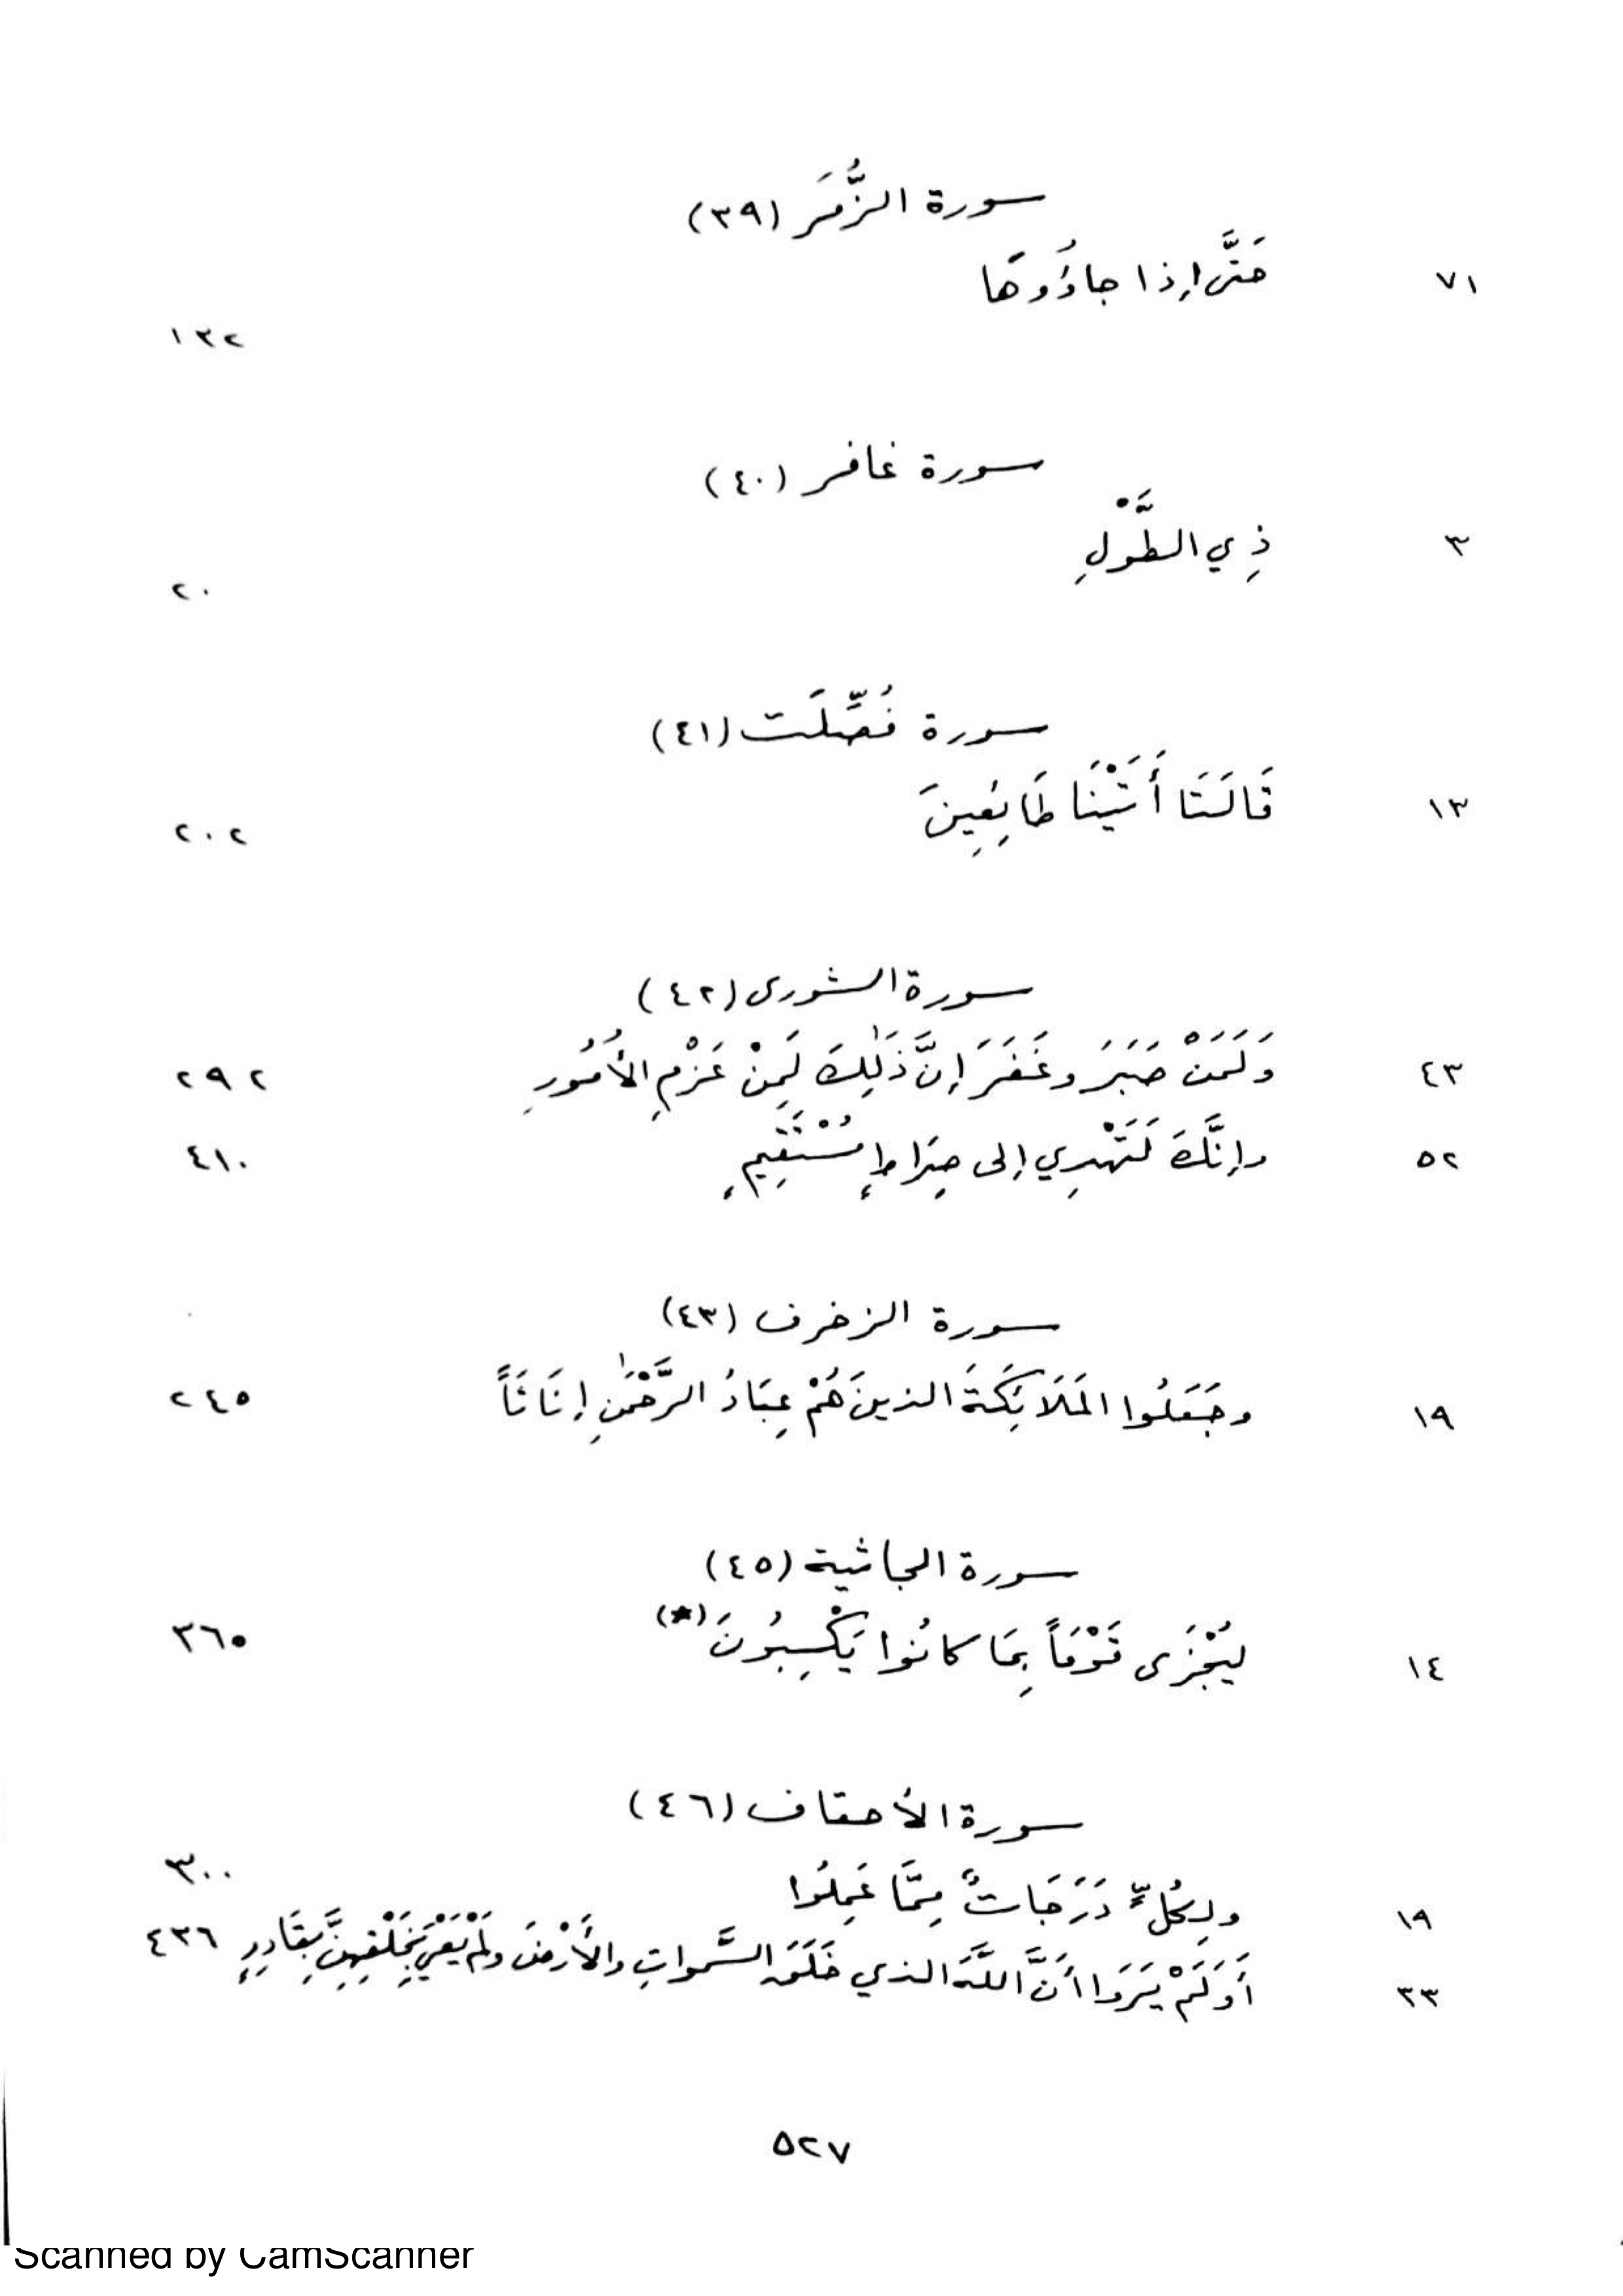 سورة الزُّمَر (٣٩)
٧١ حَتَّى إذا جاءُوهَا ١٣٢
سورة غافر (٤٠)
٣ ذِي الطَّوْلِ ٢٠
سورة فُصِّلَت (٤١)
١٣ قَالَتَا أَتَيْنَا طَائِعِينَ ٢٠٢
سورة الشورى (٤٢)
٤٣ وَلَمَنْ صَبَرَ وغَفَرَ إنَّ ذَٰلِكَ لَمِنْ عَزْمِ الأُمُورِ ٢٩٢
٥٢ وإنَّكَ لَتَهْدِي إلى صِرَاطٍ مُسْتَقِيمٍ ٤١٠
سورة الزخرف (٤٣)
١٩ وجَعَلُوا المَلَائِكَةَ الذينَ هُمْ عِبَادُ الرَّحْمَٰنِ إنَاثَاً ٢٤٥
سورة الجاثية (٤٥)
١٤ ليُجْزَى قَوْمَاً بِمَا كانُوا يَكْسِبُونَ (★) ٣٦٥
سورة الأحقاف (٤٦)
١٩ ولِكُلٍّ دَرَجَاتٌ مِمَّا عَمِلُوا ٣٠٠
٣٣ أَوَلَمْ يَرَوَا أَنَّ اللَّهَ الذي خَلَقَ السَّمواتِ والأَرْضَ ولَمْ يَعْيَ بِخَلْقِهِنَّ بِقَادِرٍ ٤٣٦
٥٢٧
Scanned by CamScanner